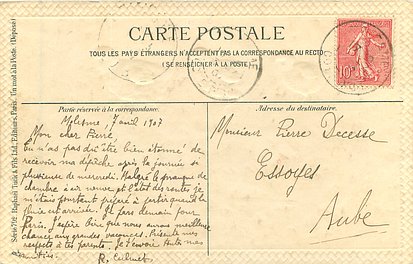 CARTE POSTALE
TOUS LES PAYS ÉTRANGERS N'ACCEPTENT PAS LA CORRESPONDANCE AU RECTO
(SE RENSEIGNER À LA POSTE)
Partie réservée à la correspondance.
Adresse du destinataire.
7 avril 1907
Mon cher Pierre,
Tu n'as pas dû être bien étonné de
recevoir ma dépêche après la journée si
pluvieuse de mercredi. Malgré le manque de
chambre à air neuve et l'état des routes je
m'étais pourtant préparé à partir quand la
pluie est arrivée. Je pars demain pour
Paris. J'espère bien que nous aurons meilleure
chance aux grandes vacances. Présente mes
respects à tes parents.
R.
Monsieur Pierre Decesse
Essoyes
Aube
10
Raphael Tuck & Fils, Ltd., Éditeurs, Paris.
(Déposé)